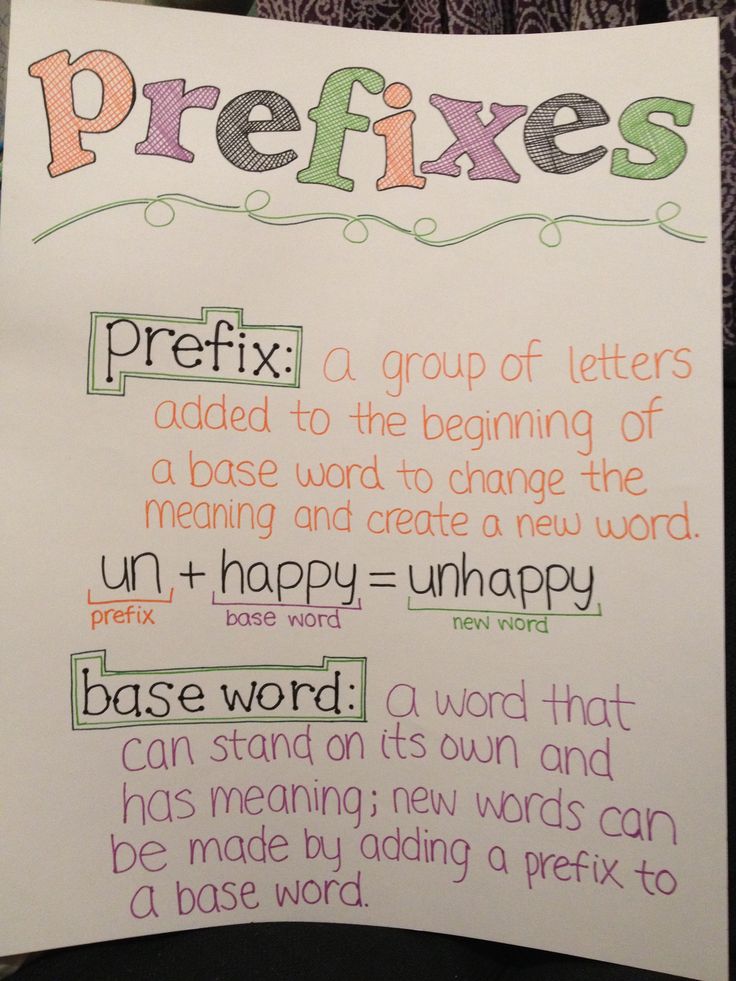 prefixes
prefix: a group of letters
added to the beginning of
a base word to change the
meaning and create a new word.
un + happy = unhappy
prefix base word new word
base word: a word that
can stand on its own and
has meaning; new words can
be made by adding a prefix to
a base word.